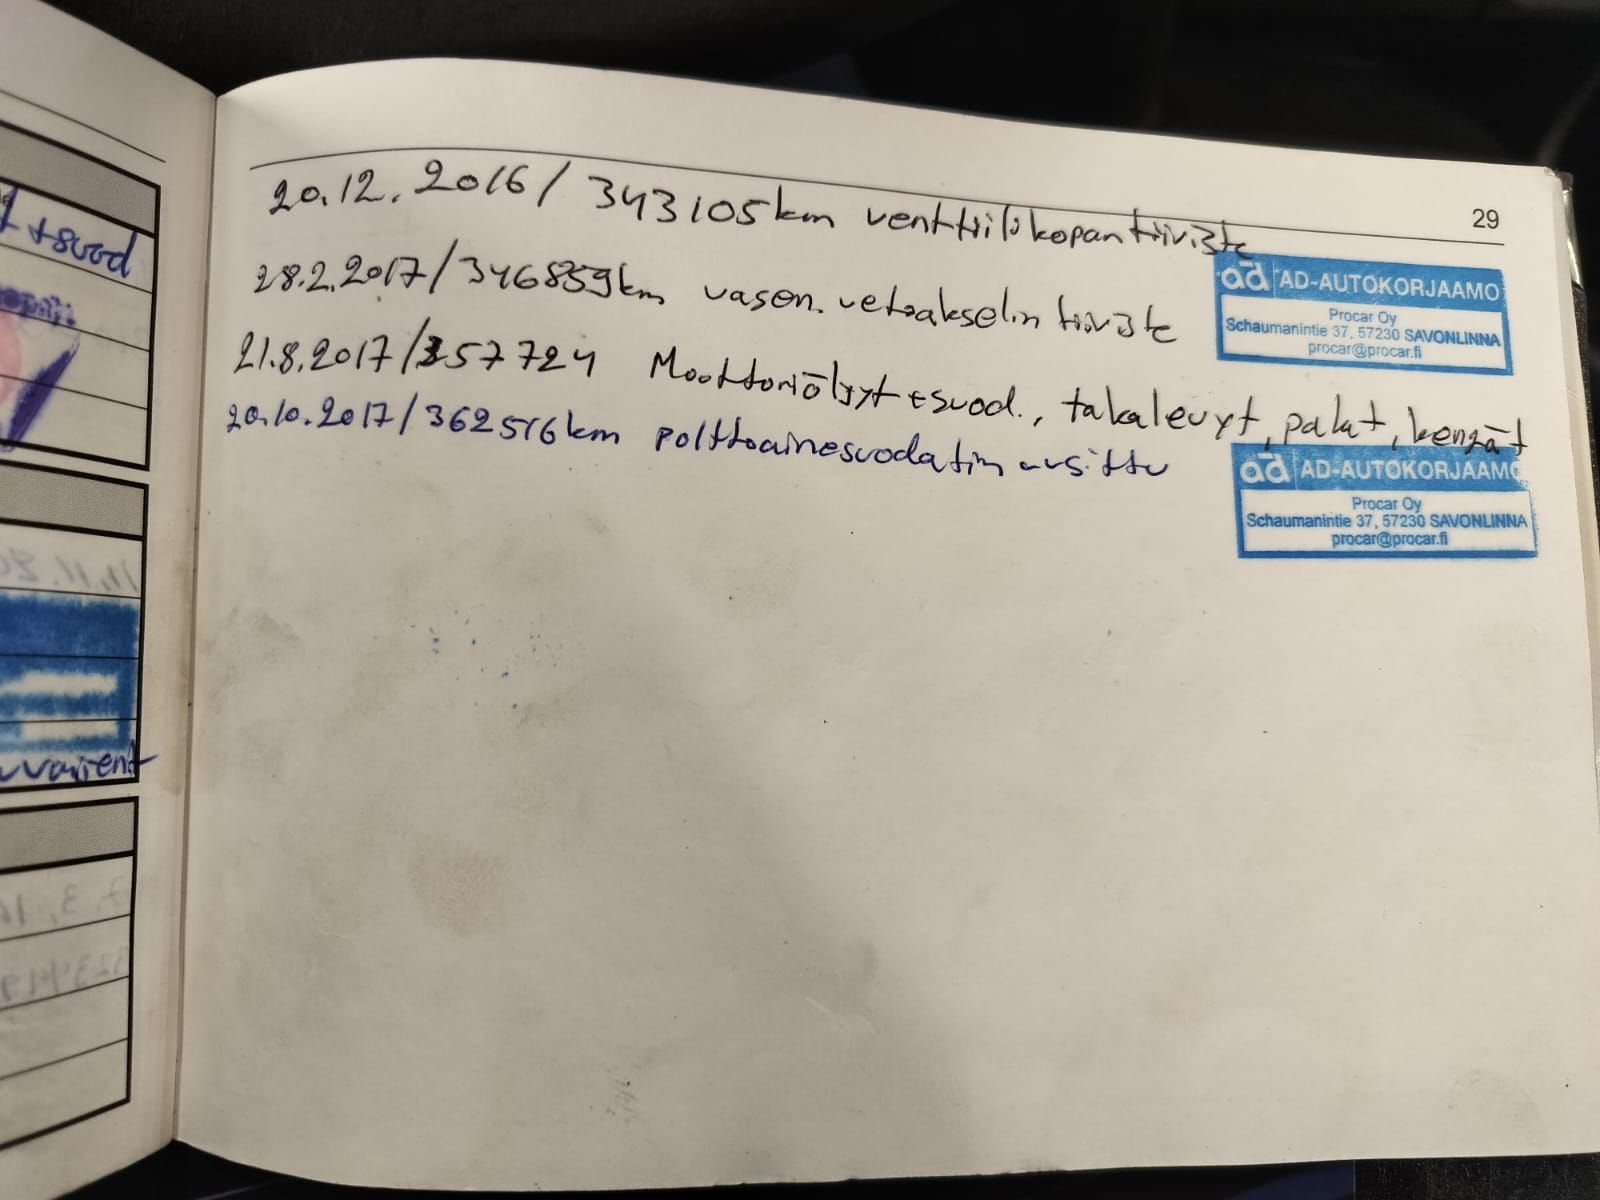 29
20.12.2016/ 343105km venttiilikopan tiiviste
28.2.2017/346859km vasen. vetoakselin tiiviste
21.8.2017/357724 Moottoriöljyt+suod., takalevyt, palat, kengät
20.10.2017/362516km polttoainesuodatin uusittu
ad AD-AUTOKORJAAMO
Procar Oy
Schaumanintie 37, 57230 SAVONLINNA
procar@procar.fi
ad AD-AUTOKORJAAMO
Procar Oy
Schaumanintie 37, 57230 SAVONLINNA
procar@procar.fi
+suod